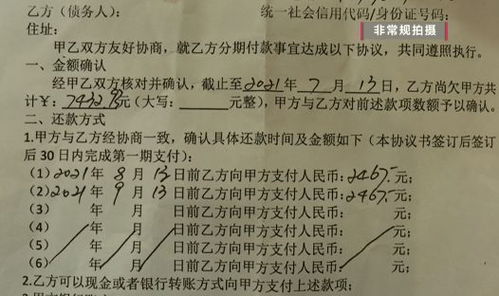 非常规拍摄
乙方（债务人）： 统一社会信用代码/身份证号码：
住址：
甲乙双方友好协商，就乙方分期付款事宜达成以下协议，共同遵照执行。
一、金额确认
经甲乙双方核对并确认，截止至2021年7月13日，乙方尚欠甲方共
计￥：元（大写：元整），甲方与乙方对前述款项数额予以确认。
二、还款方式
1.甲方与乙方经协商一致，确认具体还款时间及金额如下（本协议书签订后签订
后 30 日内完成第一期支付）：
（1）2021年8月13日前乙方向甲方支付人民币：2467.-元；
（2）2021年9月13日前乙方向甲方支付人民币：2467.-元；
（3） 年 月 日前乙方向甲方支付人民币： 元；
（4） 年 月 日前乙方向甲方支付人民币： 元；
（5） 年 月 日前乙方向甲方支付人民币： 元；
（6） 年 月 日前乙方向甲方支付人民币： 元；
2.乙方可以现金或者银行转账方式向甲方支付上述款项；